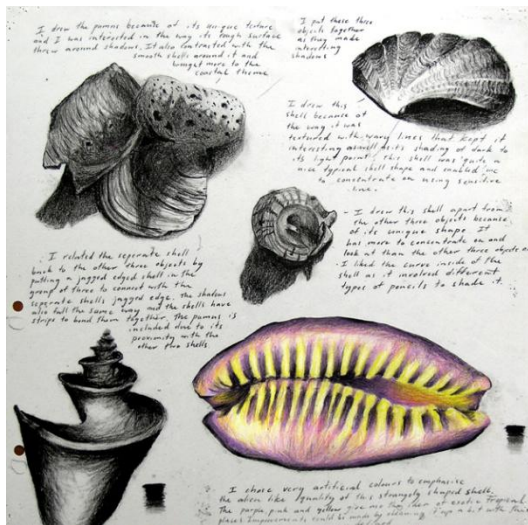 I drew the pumus because of its unique texture
and I was interested in the way its rough surface
threw around shadows. It also contrasted with the
smooth shells around it and
brought more to the
coastal theme
I put these three
objects together
as they made
interesting
shadows
I drew this
shell because of
the way it was
textured with wavy lines that kept it
interesting as well as its shading of dark to
its light point. This shell was quite a
nice typical shell shape and enabled me
to concentrate on using sensitive
line.
- I drew this shell apart from
the other three objects because
of its unique shape. It
has more to concentrate on and
look at than the other three objects
- I liked the curve inside of the
shell as it involved different
types of pencils to shade it.
- I related the separate shell
back to the other three objects by
putting a jagged edged shell in the
group of three to connect with the
separate shells jagged edge. the shadows
also fall the same way and the shells have
strips to bind them together. The pumus is
included due to its
proximity with the
other two shells
I chose very artificial colours to emphasise
the alien like quality of this strangely shaped shell.
The purple, pink and yellow give me the idea of exotic tropical
places. Improvements could be made by cleaning it up a bit with